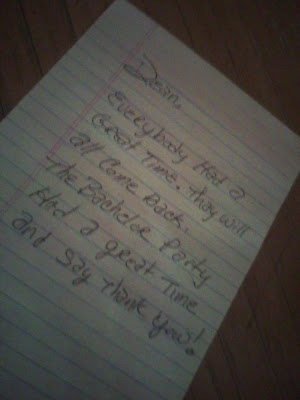 Dean,
Everybody Had a
Great Time. They will
all Come back.
The Bachelor Party
Had a great Time
and Say Thank You!